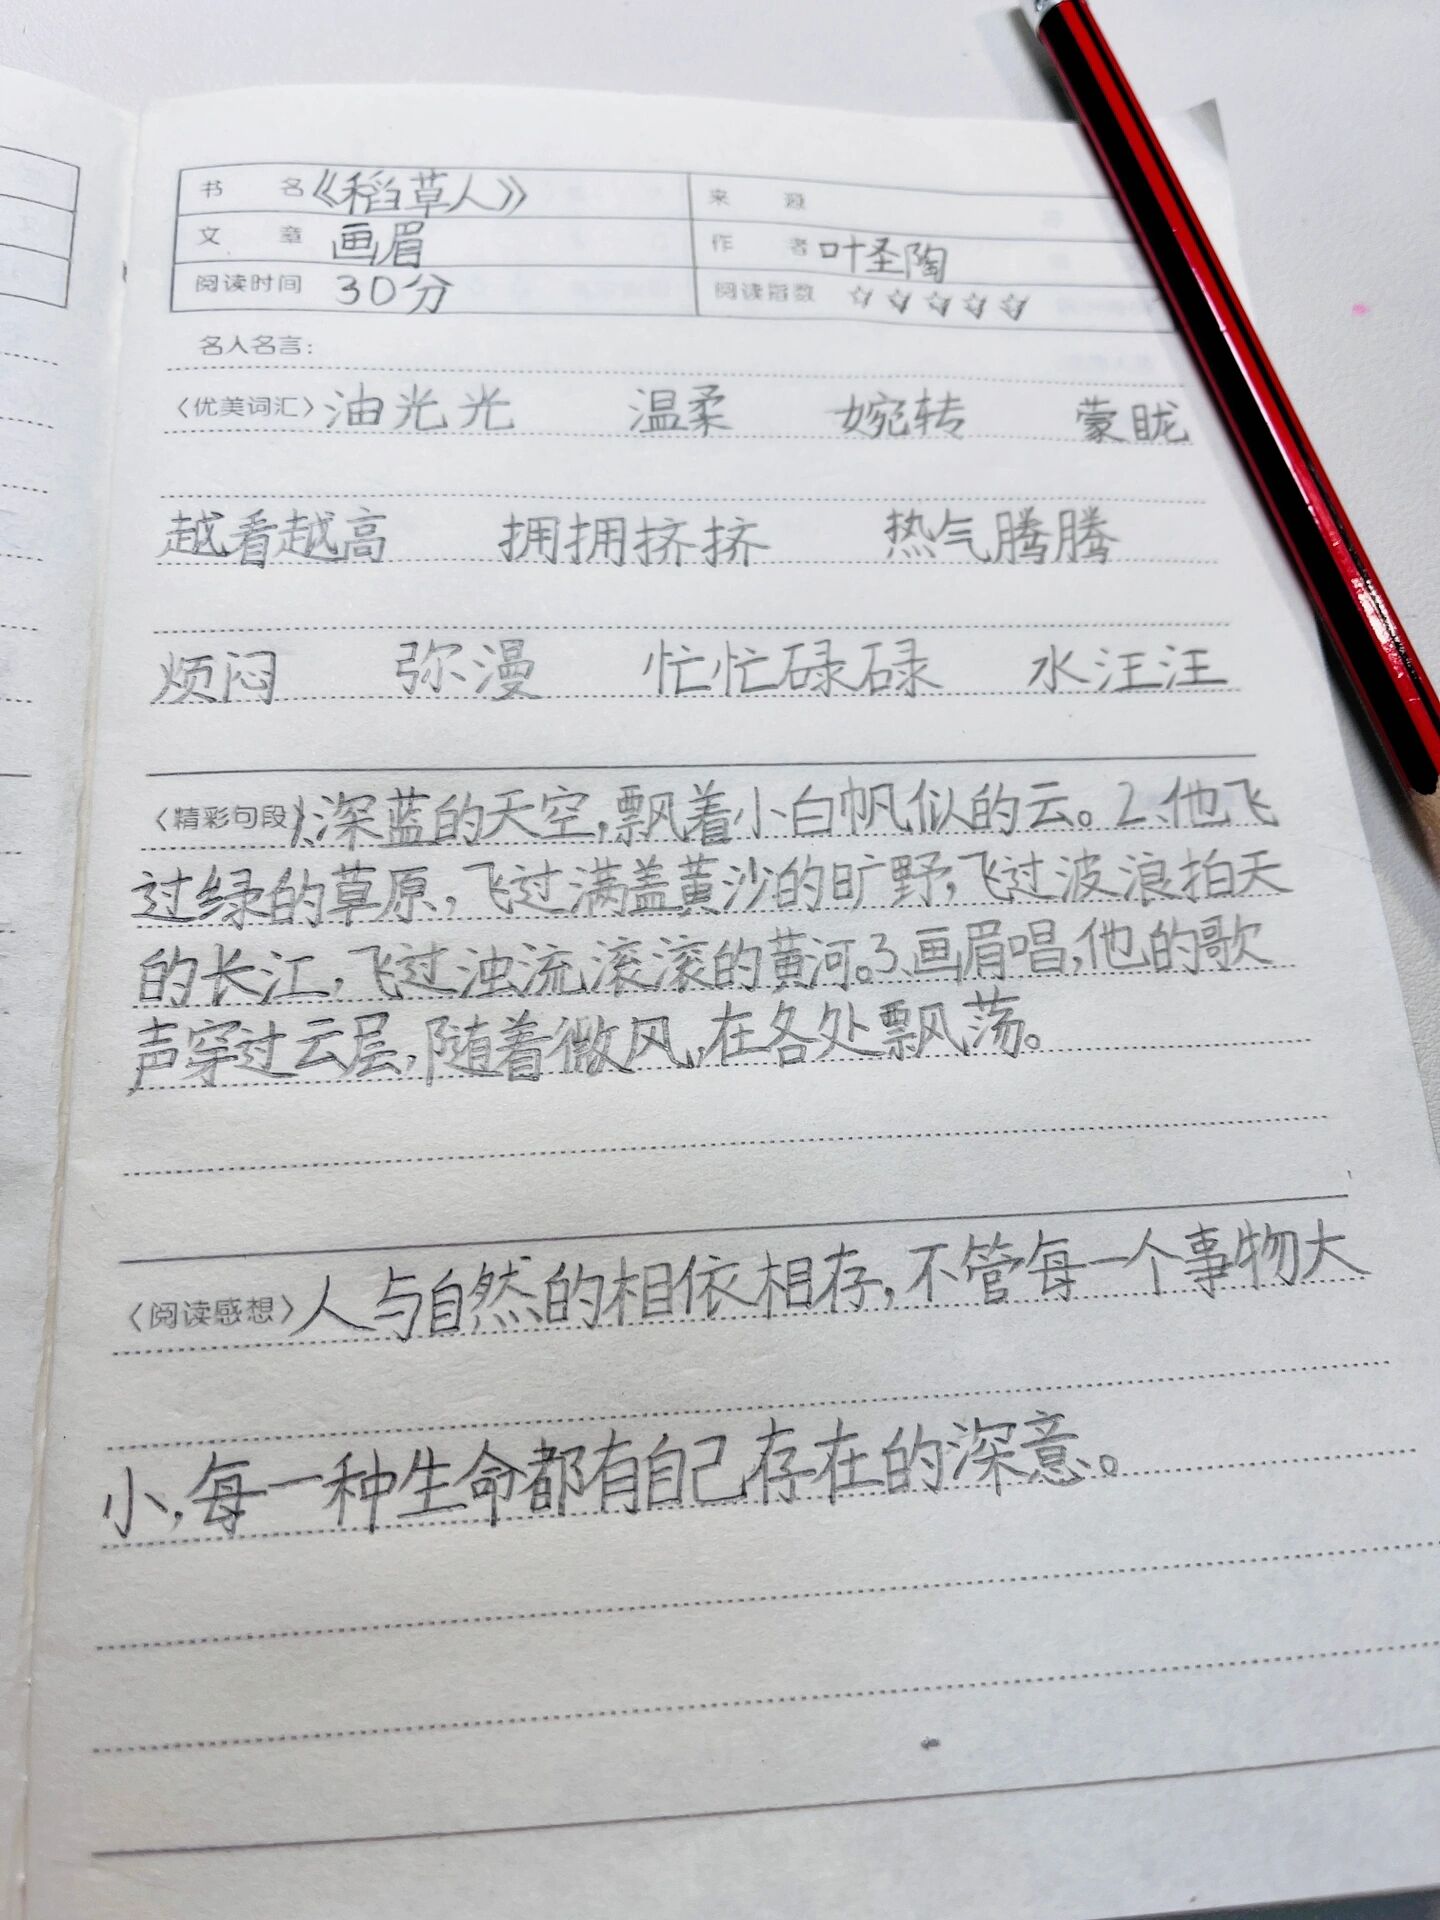 书 名 《稻草人》 来 源
文 章 画眉 作 者 叶圣陶
阅读时间 30分 阅读指数 ☆☆☆☆☆
名人名言:
〈优美词汇〉油光光 温柔 婉转 蒙眬
越看越高 拥拥挤挤 热气腾腾
烦闷 弥漫 忙忙碌碌 水汪汪
〈精彩句段〉1、深蓝的天空,飘着小白帆似的云。2、他飞
过绿的草原,飞过满盖黄沙的旷野,飞过波浪拍天
的长江,飞过浊流滚滚的黄河。3、画眉唱,他的歌
声穿过云层,随着微风,在各处飘荡。
〈阅读感想〉人与自然的相依相存,不管每一个事物大
小,每一种生命都有自己存在的深意。